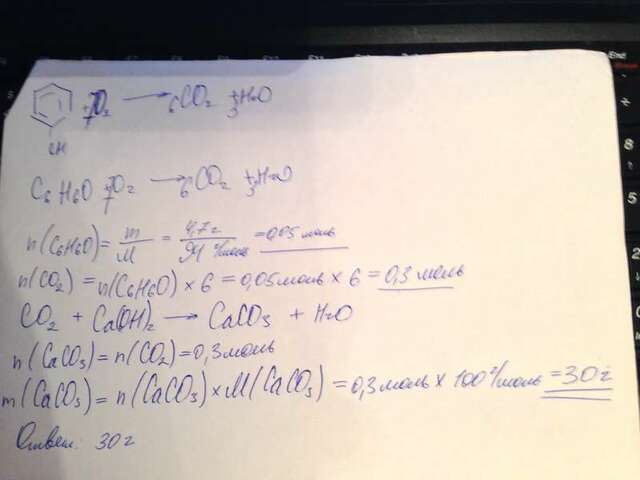 +7O₂ → 6CO₂ +3H₂O
OH
C₆H₆O +7O₂ → 6CO₂ +3H₂O
n(C₆H₆O) = m/M = 4,7г/94г/моль = 0,05 моль
n(CO₂) = n(C₆H₆O) × 6 = 0,05моль × 6 = 0,3 моль
CO₂ + Ca(OH)₂ → CaCO₃ + H₂O
n(CaCO₃) = n(CO₂) = 0,3моль
m(CaCO₃) = n(CaCO₃) × M(CaCO₃) = 0,3моль × 100г/моль = 30г
Ответ. 30г